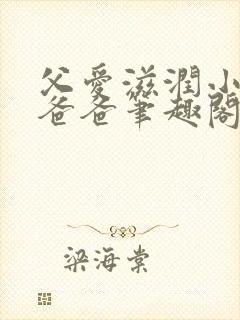 父愛滋潤小
爸爸筆趣閣
梁海棠